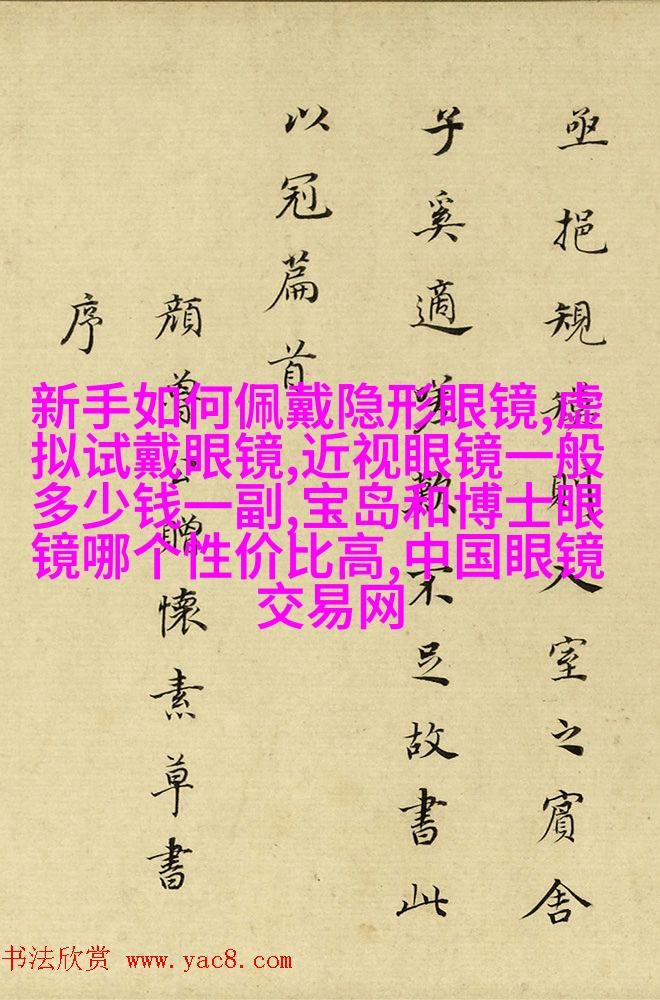 亟挹規模則入室之賓舍
子奚適嗟歎不足故書此
以冠篇首
顏魯公贈懷素草書
序
新手如何佩戴隐形眼镜,虚
拟试戴眼镜,近视眼镜一般
多少钱一副,宝岛和博士眼
镜哪个性价比高,中国眼镜
交易网
书法欣赏 www.yac8.com